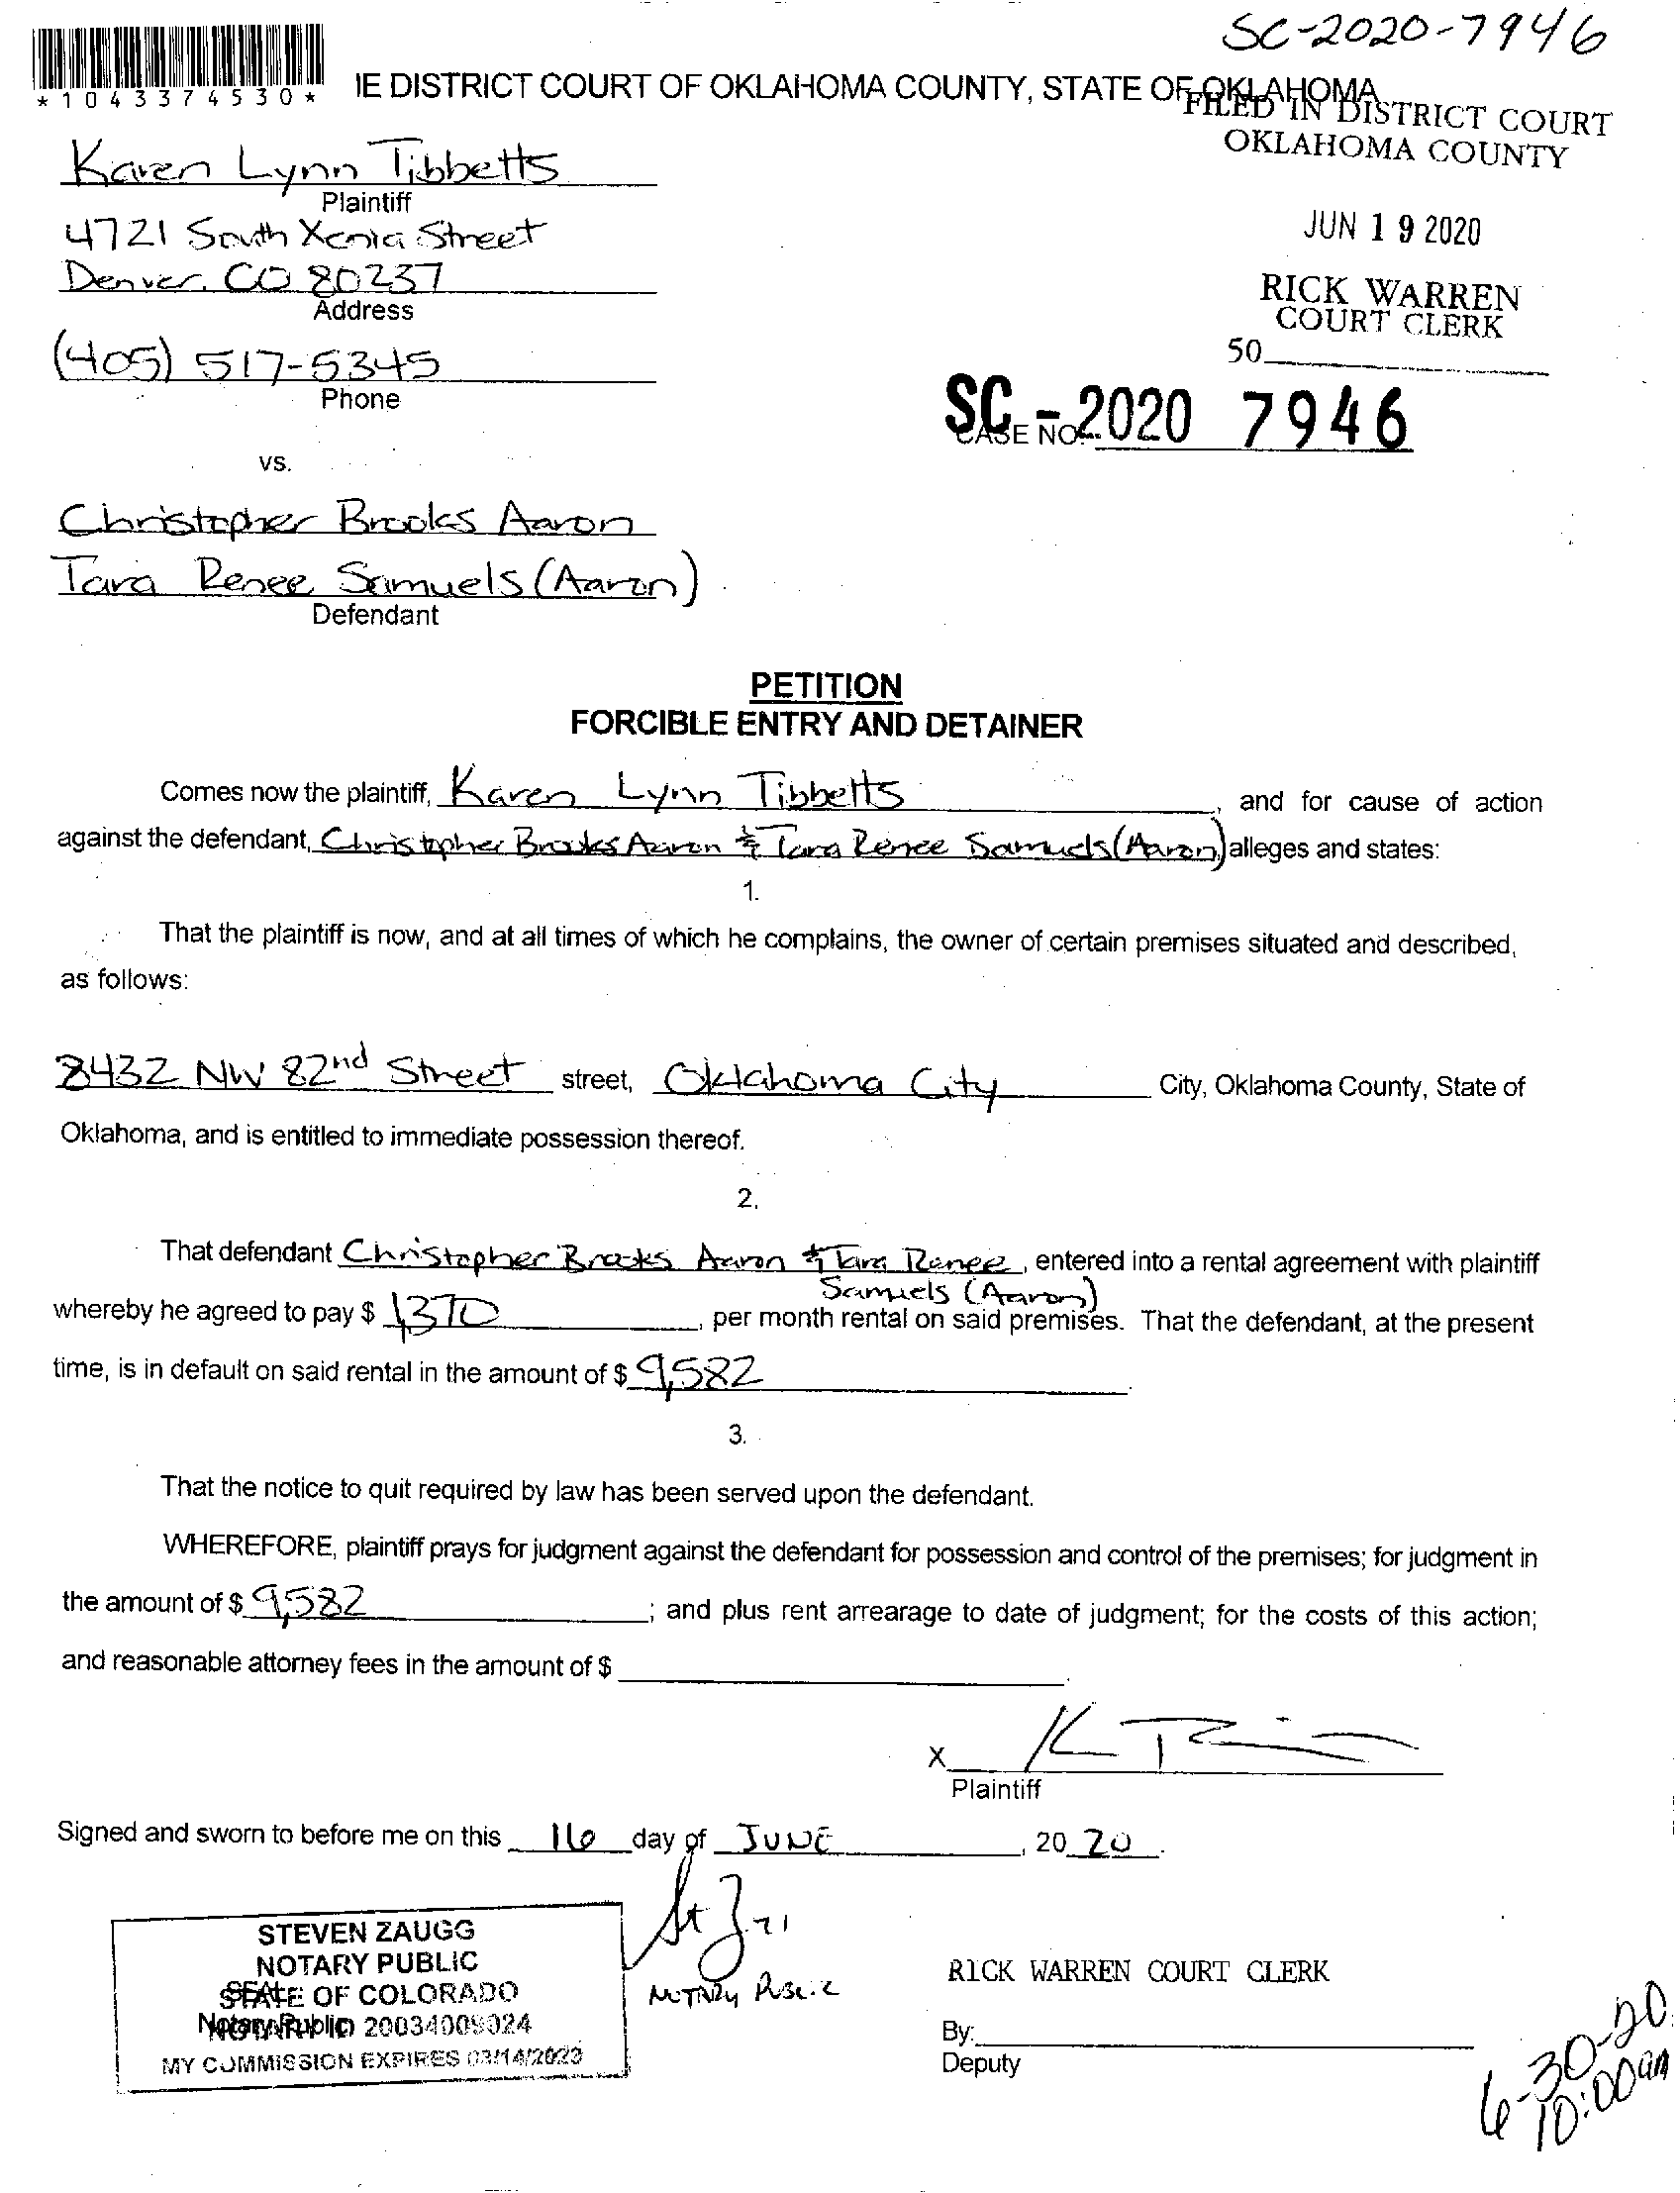 SC-2020-7946
*1043374530*
IE DISTRICT COURT OF OKLAHOMA COUNTY, STATE OF OKLAHOMA
FILED IN DISTRICT COURT
OKLAHOMA COUNTY
Karen Lynn Tibbetts
Plaintiff
4721 South Xenia Street
JUN 19 2020
Denver, CO 80237
Address
RICK WARREN
COURT CLERK
(405) 517-5345
50
Phone
SC-2020 7946
CASE NO.
vs.
Christopher Brooks Aaron
Tara Renee Samuels (Aaron)
Defendant
PETITION
FORCIBLE ENTRY AND DETAINER
Comes now the plaintiff, Karen Lynn Tibbetts, and for cause of action
against the defendant, Christopher Brooks Aaron & Tara Renee Samuels (Aaron) alleges and states:
1.
That the plaintiff is now, and at all times of which he complains, the owner of certain premises situated and described,
as follows:
8432 NW 82nd Street street, Oklahoma City City, Oklahoma County, State of
Oklahoma, and is entitled to immediate possession thereof.
2.
That defendant Christopher Brooks Aaron & Tara Renee, entered into a rental agreement with plaintiff
Samuels (Aaron)
whereby he agreed to pay $ 1,370, per month rental on said premises. That the defendant, at the present
time, is in default on said rental in the amount of $ 9,582.
3.
That the notice to quit required by law has been served upon the defendant.
WHEREFORE, plaintiff prays for judgment against the defendant for possession and control of the premises; for judgment in
the amount of $ 9,582; and plus rent arrearage to date of judgment; for the costs of this action;
and reasonable attorney fees in the amount of $
X K T
Plaintiff
Signed and sworn to before me on this 16 day of JUNE, 20 20.
STEVEN ZAUGG
NOTARY PUBLIC
STATE OF COLORADO
NOTARY ID 20034009024
MY COMMISSION EXPIRES 03/14/2023
NOTARY PUBLIC
RICK WARREN COURT CLERK
By:
Deputy
6-30-20
10:00am